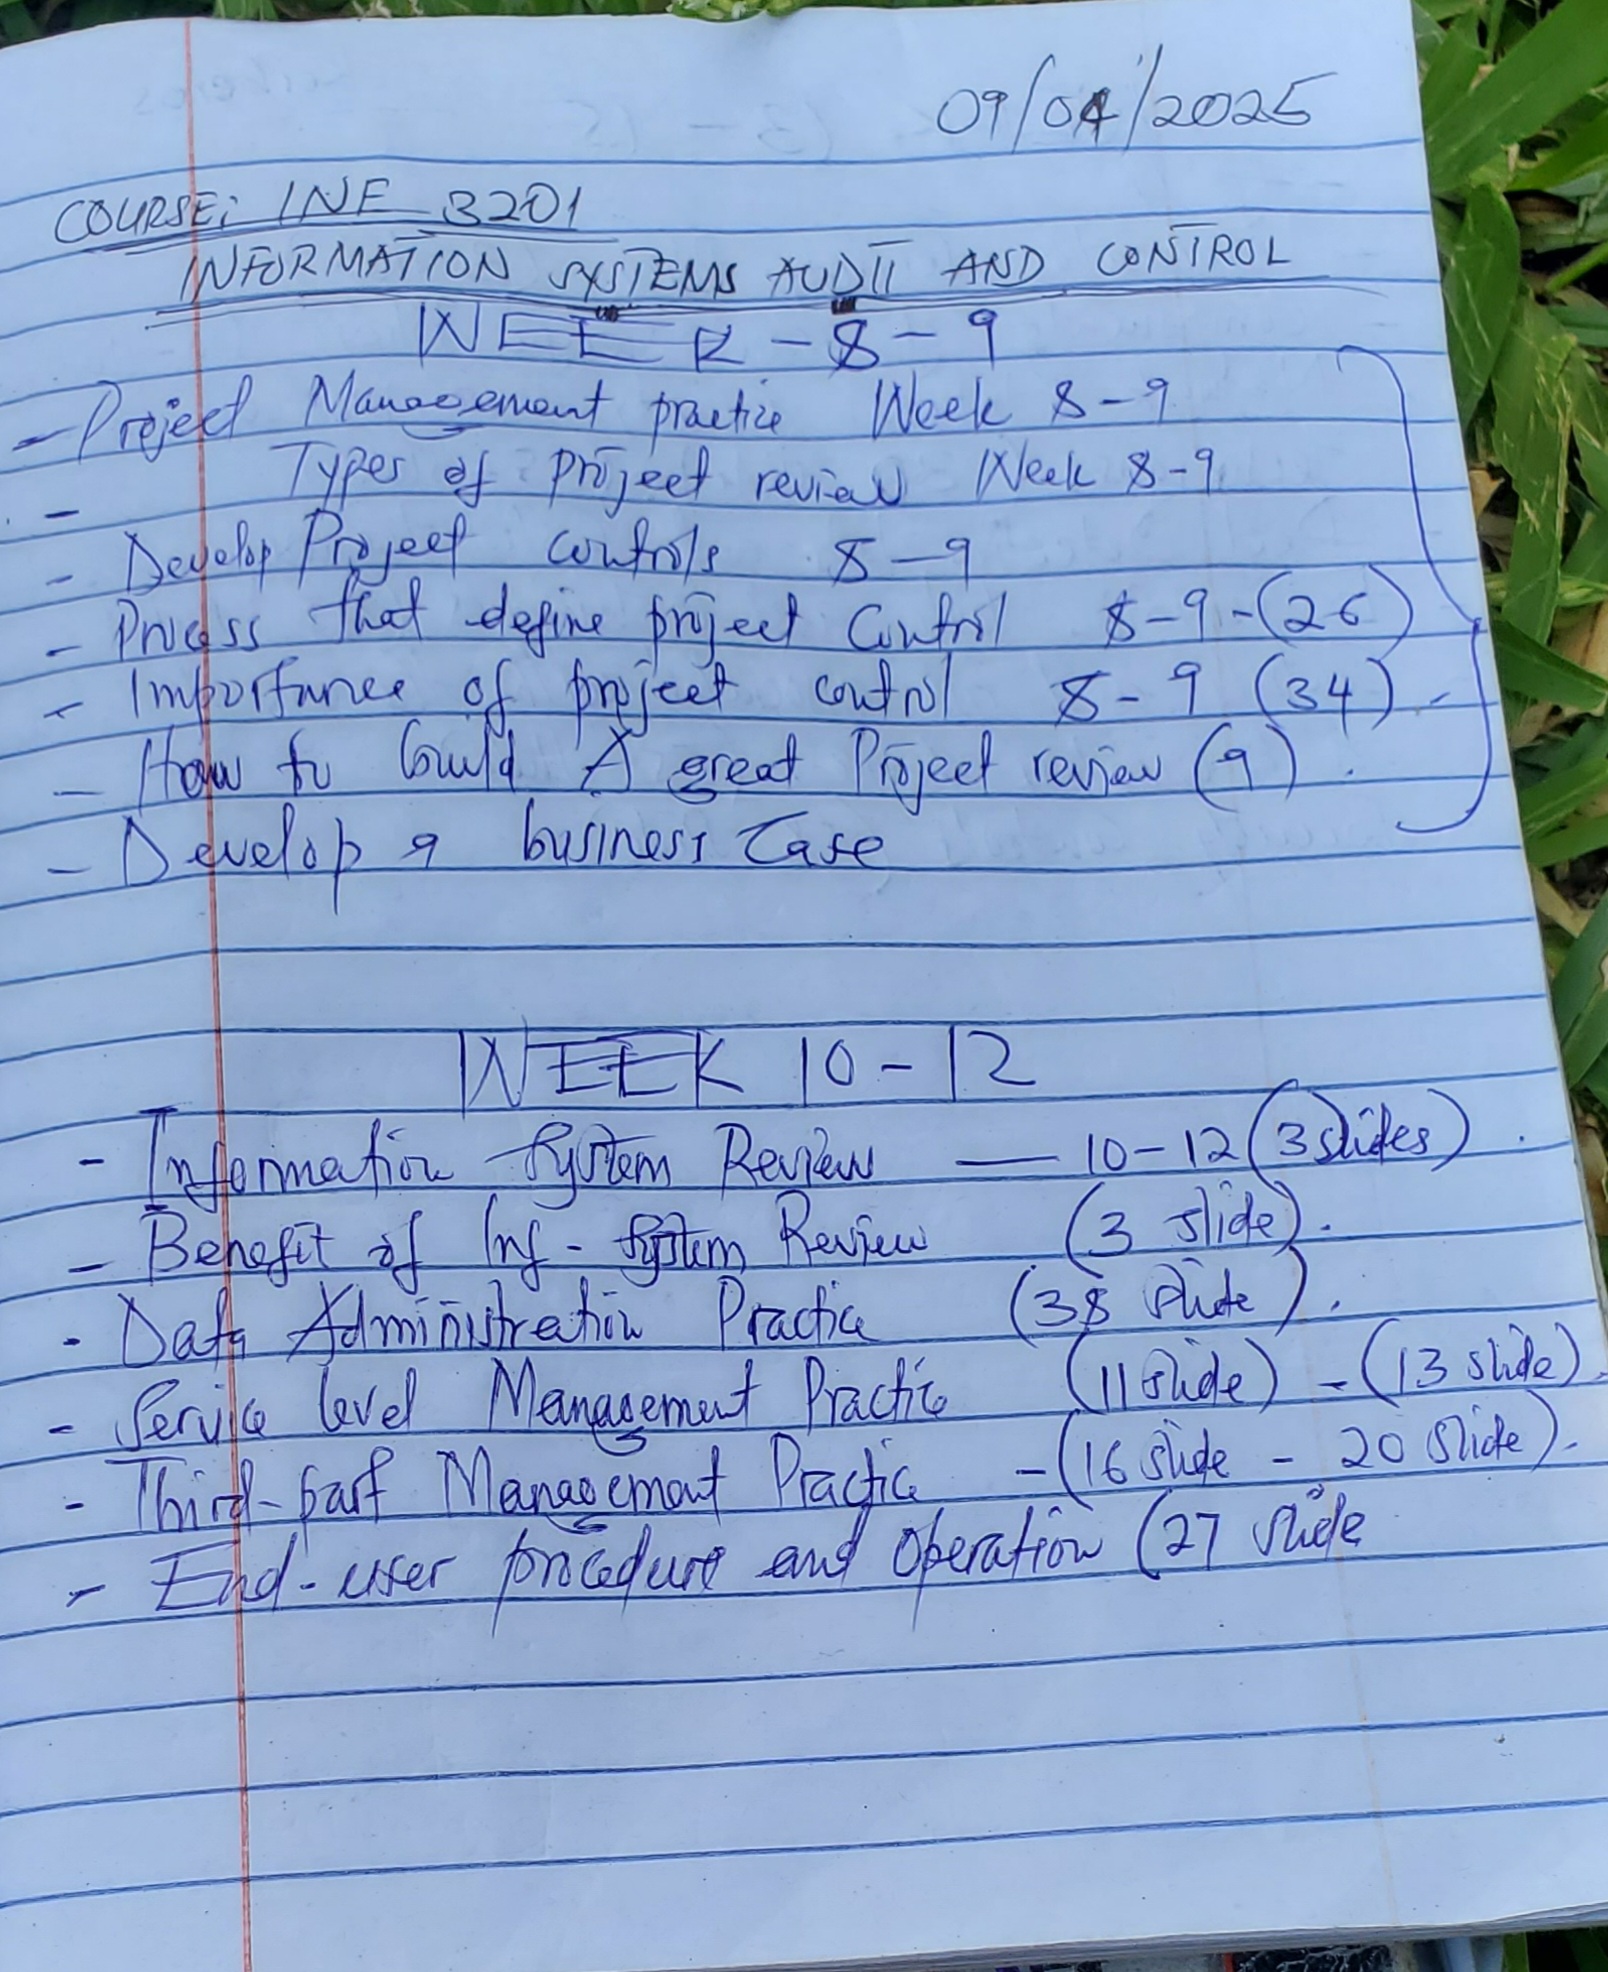 09/04/2025
COURSE: INF 3201
INFORMATION SYSTEMS AUDIT AND CONTROL
WEEK - 8 - 9
- Project Management practice Week 8-9
- Types of project review Week 8-9
- Develop Project controls 8-9
- Process that define project Control 8-9-(26)
- Importance of project control 8-9 (34).
- How to build A great Project review (9).
- Develop a business Case
WEEK 10-12
- Information System Review — 10-12 (3 slides).
- Benefit of Inf- System Review (3 slide).
- Data Administration Practice (38 slide).
- Service level Management Practice (11 slide) - (13 slide).
- Third-part Management Practice - (16 slide - 20 slide).
- End-user procedure and Operation (27 slide